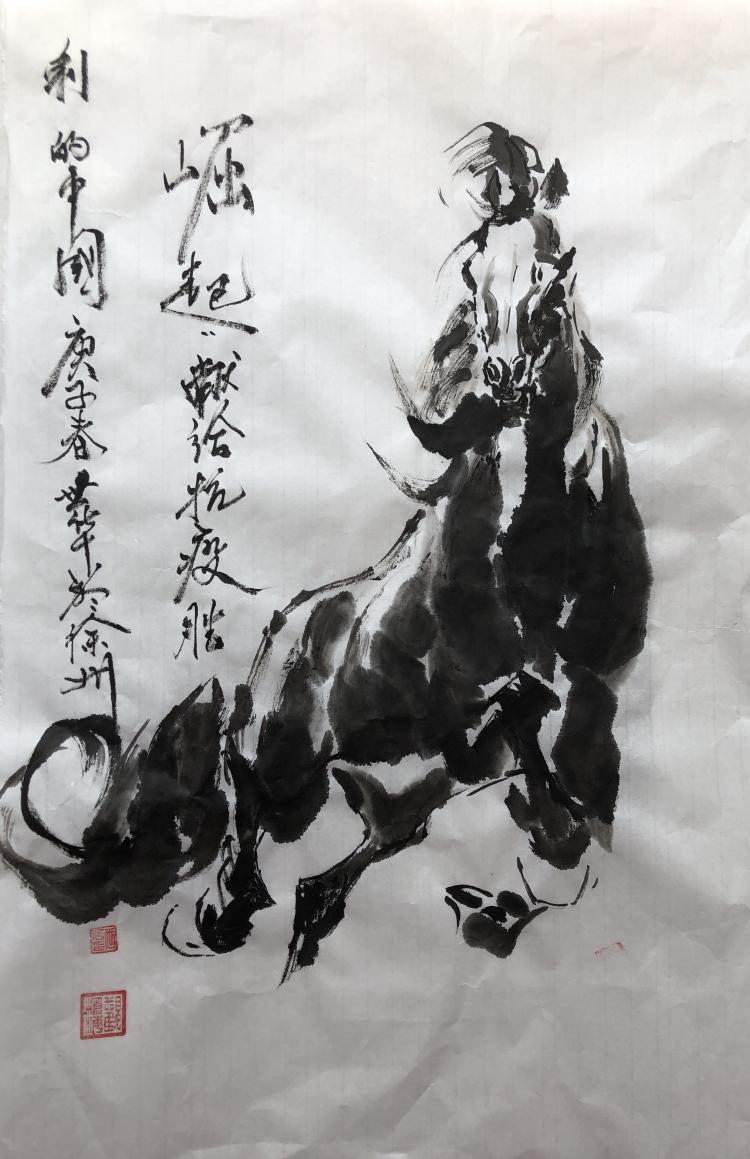 崛起"献给抗疫胜
利的中国庚子春世华於徐州